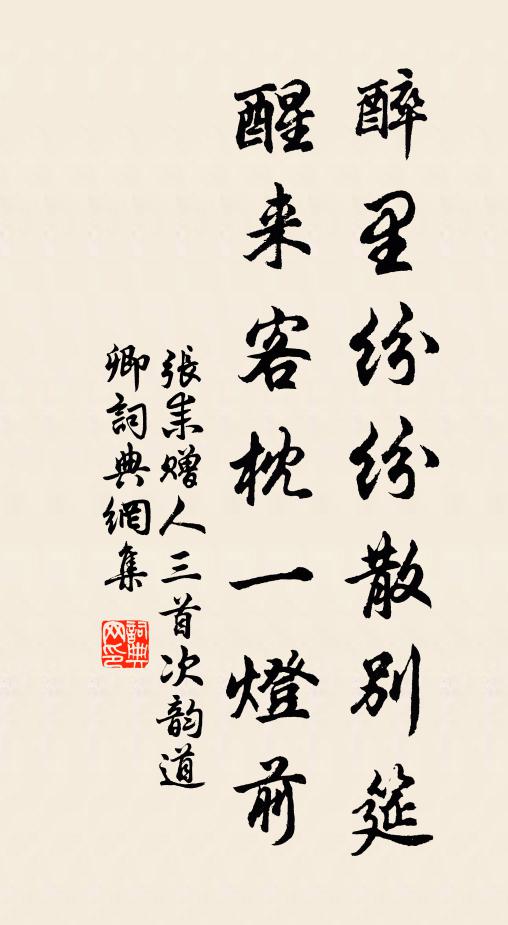 醉里纷纷散别筵
醒来客枕一燈前
張耒赠人三首次韵道
卿詞典網集
詞典网印